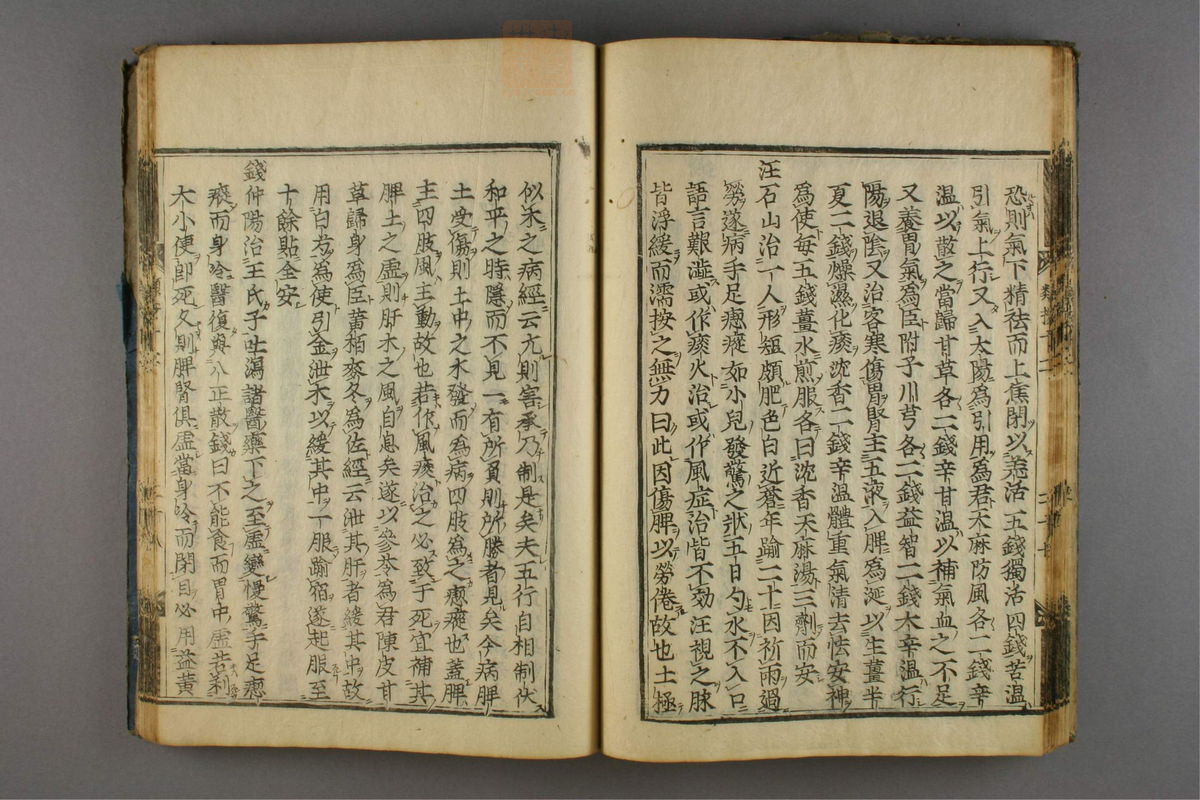 恐則氣下精祛而上焦閉以羌活五錢獨活四錢苦溫
引氣上行又入太陽爲引用爲君天麻防風各二錢辛
溫以散之當歸甘草各二錢辛甘溫以補氣血之不足
又養胃氣爲臣附子川芎各二錢益智二錢大辛溫行
陽退陰又治客寒傷胃腎主五液入脾爲涎以生薑半
夏二錢燥濕化痰沈香二錢辛溫體重氣清去怯安神
爲使每五錢薑水煎服名曰沈香天麻湯三劑而安
汪石山治一人形短頗肥色白近蒼年踰二十因祈雨過
勞遂病手足瘛瘲如小兒發驚之狀五日勺水不入口
語言艱澁或作痰火治或作風症治皆不効汪視之脉
皆浮緩而濡按之無力曰此因傷脾以勞倦故也土極
似木之病經云亢則害承乃制是矣夫五行自相制伏
和平之時隱而不見一有所負則所勝者見矣今病脾
土受傷則土中之木發而爲病四肢爲之瘛瘲也蓋脾
主四肢風主動故也若作風痰治之必致于死宜補其
脾土之虛則肝木之風自息矣遂以參芪爲君陳皮甘
草歸身爲臣黃栢麥冬爲佐經云泄其肝者緩其中故
用白芍爲使引金泄木以緩其中一服踰宿遂起服至
十餘點全安
錢仲陽治王氏子吐瀉諸醫藥下之至虛變慢驚手足瘛
瘲而身冷醫復與八正散錢曰不能食而胃中虛若利
大小便即死久則脾腎俱虛當身冷而閉目必用益黃